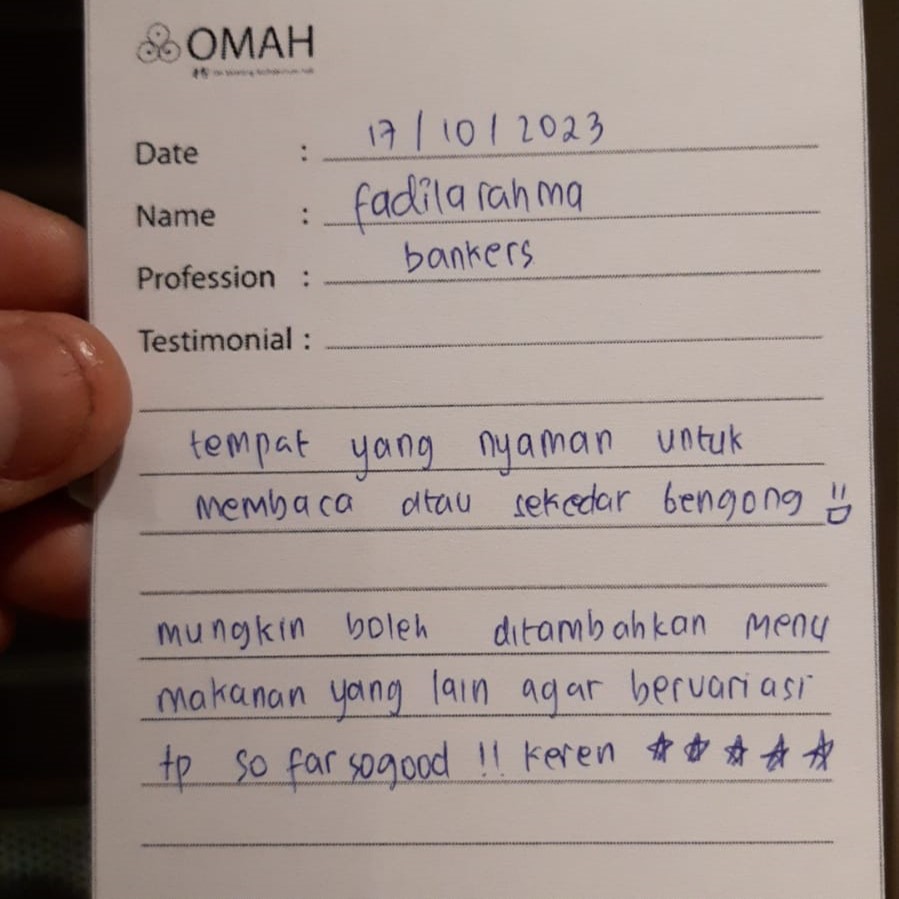 OMAH
Date : 17/10/2023
Name : fadila rahma
Profession : bankers
Testimonial :
tempat yang nyaman untuk
membaca atau sekedar bengong
mungkin boleh ditambahkan menu
makanan yang lain agar bervariasi
tp so far so good !! keren ☆☆☆☆☆